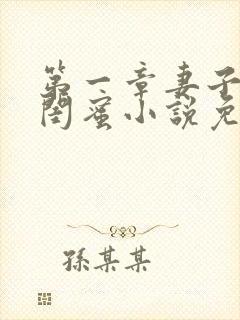 第一章妻子
闺蜜小説免
孫某某